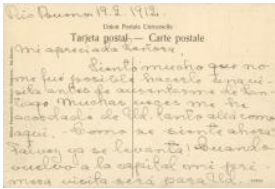 Rio Bueno 19.2.1912.
Union Postale Universelle
Tarjeta postal — Carte postale
Mi apreciada Doctora.
Siento mucho que no
me fué posible hacerle
visita antes de ausentarme de San-
tiago. Muchas veces me he
acordado de Ud. tanto allá como
aquí. Como se siente ahora
Talvez ya se levanta! Cuando
vuelvo a la capital mi pri
mera visita será para Ud.